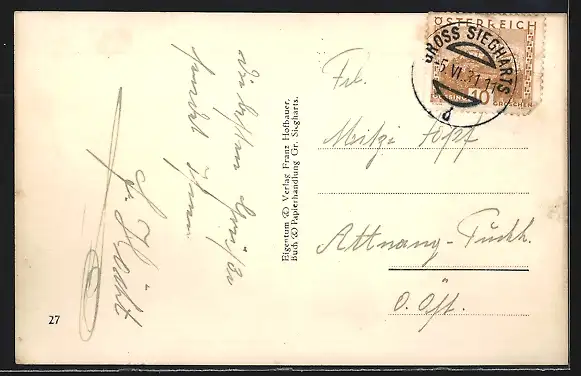 die besten Grüße
sendet Ihnen
27
Eigentum & Verlag Franz Hofbauer,
Buch & Papierhandlung Gr. Siegharts.
ÖSTERREICH
GROSS SIEGHARTS
5.VI.31
10
GROSCHEN
Frl.
Mitzi
Attnang-Puchh.
O. Öst.